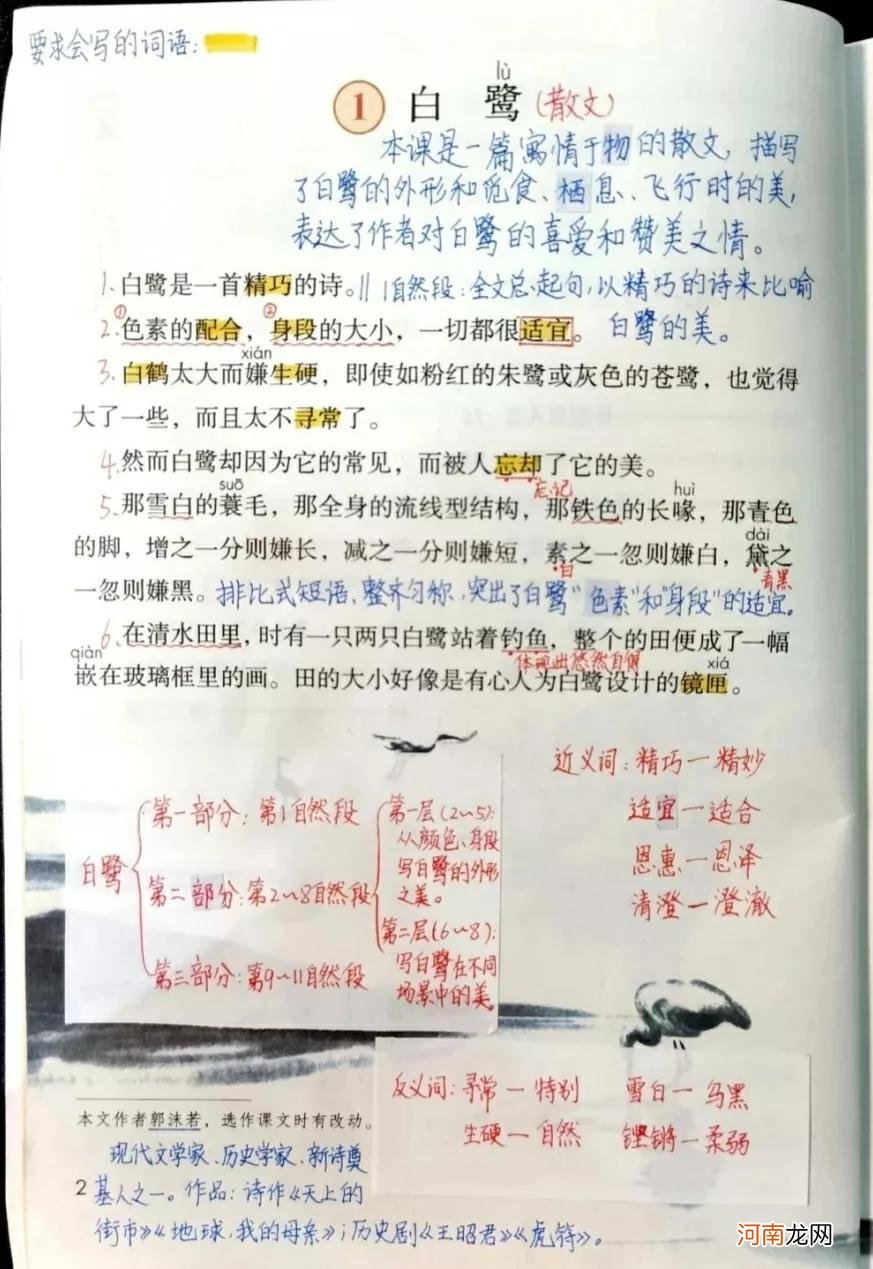 要求会写的词语：
lù
1 白鹭(散文)
本课是一篇寓情于物的散文，描写
了白鹭的外形和觅食、栖息、飞行时的美，
表达了作者对白鹭的喜爱和赞美之情。
1、白鹭是一首精巧的诗。∥1自然段：全文总起句，以精巧的诗来比喻
① ②
2、色素的配合，身段的大小，一切都很适宜。 白鹭的美。
xián
3、白鹤太大而嫌生硬，即使如粉红的朱鹭或灰色的苍鹭，也觉得
大了一些，而且太不寻常了。
4、然而白鹭却因为它的常见，而被人忘却了它的美。
suō 忘记 huì
5、那雪白的蓑毛，那全身的流线型结构，那铁色的长喙，那青色
dài
的脚，增之一分则嫌长，减之一分则嫌短，素之一忽则嫌白，黛之
白 青黑
一忽则嫌黑。排比式短语、整齐匀称，突出了白鹭"色素"和"身段"的适宜。
6、在清水田里，时有一只两只白鹭站着钓鱼，整个的田便成了一幅
qiàn 体现出悠然自得 xiá
嵌在玻璃框里的画。田的大小好像是有心人为白鹭设计的镜匣。
白鹭
第一部分：第1自然段
第二部分：第2～8自然段
第三部分：第9～11自然段
第一层(2～5)：
从颜色、身段
写白鹭的外形
之美。
第二层(6～8)：
写白鹭在不同
场景中的美。
近义词：精巧—精妙
适宜—适合
恩惠—恩泽
清澄—澄澈
反义词：寻常—特别 雪白—乌黑
生硬—自然 铿锵—柔弱
本文作者郭沫若，选作课文时有改动。
现代文学家、历史学家、新诗奠
基人之一。作品：诗作《天上的
街市》《地球，我的母亲》；历史剧《王昭君》《虎符》。
2
河南龙网